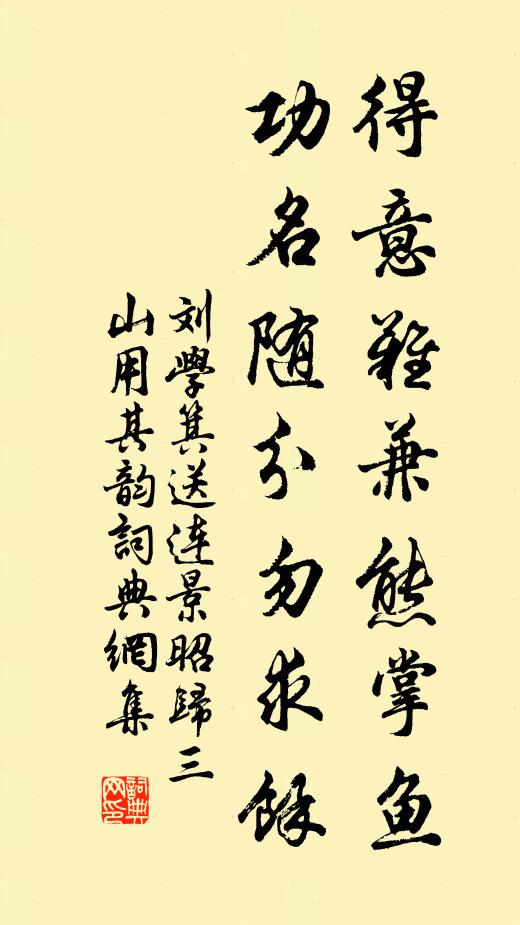 得意難兼熊掌鱼
功名随分勿求餘
刘學箕送连景昭歸三
山用其韵詞典網集
詞典
网印